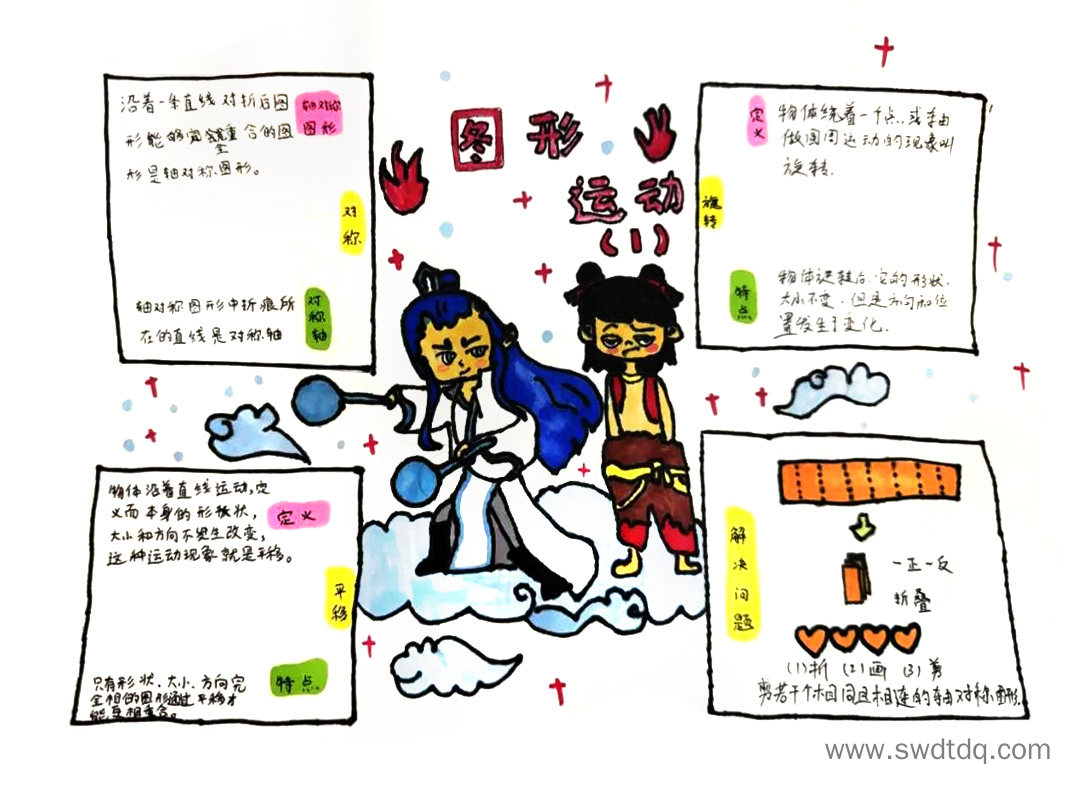 图形
运动
(1)
沿着一条直线对折后图
形能够完全重合的图
形是轴对称图形。
轴对称
图形
对
称
轴对称图形中折痕所
在的直线是对称轴
对
称
轴
定
义
物体绕着一个点,或轴
做圆周运动的现象叫
旋转.
旋
转
特
点
物体旋转后.它的形状.
大小不变.但是方向和位
置发生了变化.
物体沿着直线运动,
而本身的形状,
大小和方向不发生改变,
这种运动现象就是平移。
定义
平
移
只有形状、大小、方向完
全相同的图形通过平移才
能互相重合。
特点
解
决
问
题
一正一反
折叠
(1)折 (2)画 (3)剪
剪若干个相同且相连的轴对称图形.
www.swdtdq.com